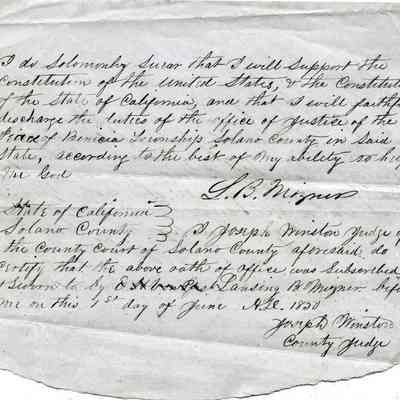 I do Solomonly Swear that I will Support the
Constitution of the United States, & the Constituti
of the State of California, and that I will faithf
discharge the duties of the office of Justice of the
Peace of Benicia Township Solano County in Said
State, according to the best of my ability so help
me God
L. B. Mizner
State of California
Solano County } I Joseph Winston Judge of
the County Court of Solano County aforesaid, do
certify that the above oath of office was Subscribed
& Sworn to by Lansing B Mizner befo
me on this 1st day of June A.D. 1850
Joseph Winston
County Judge